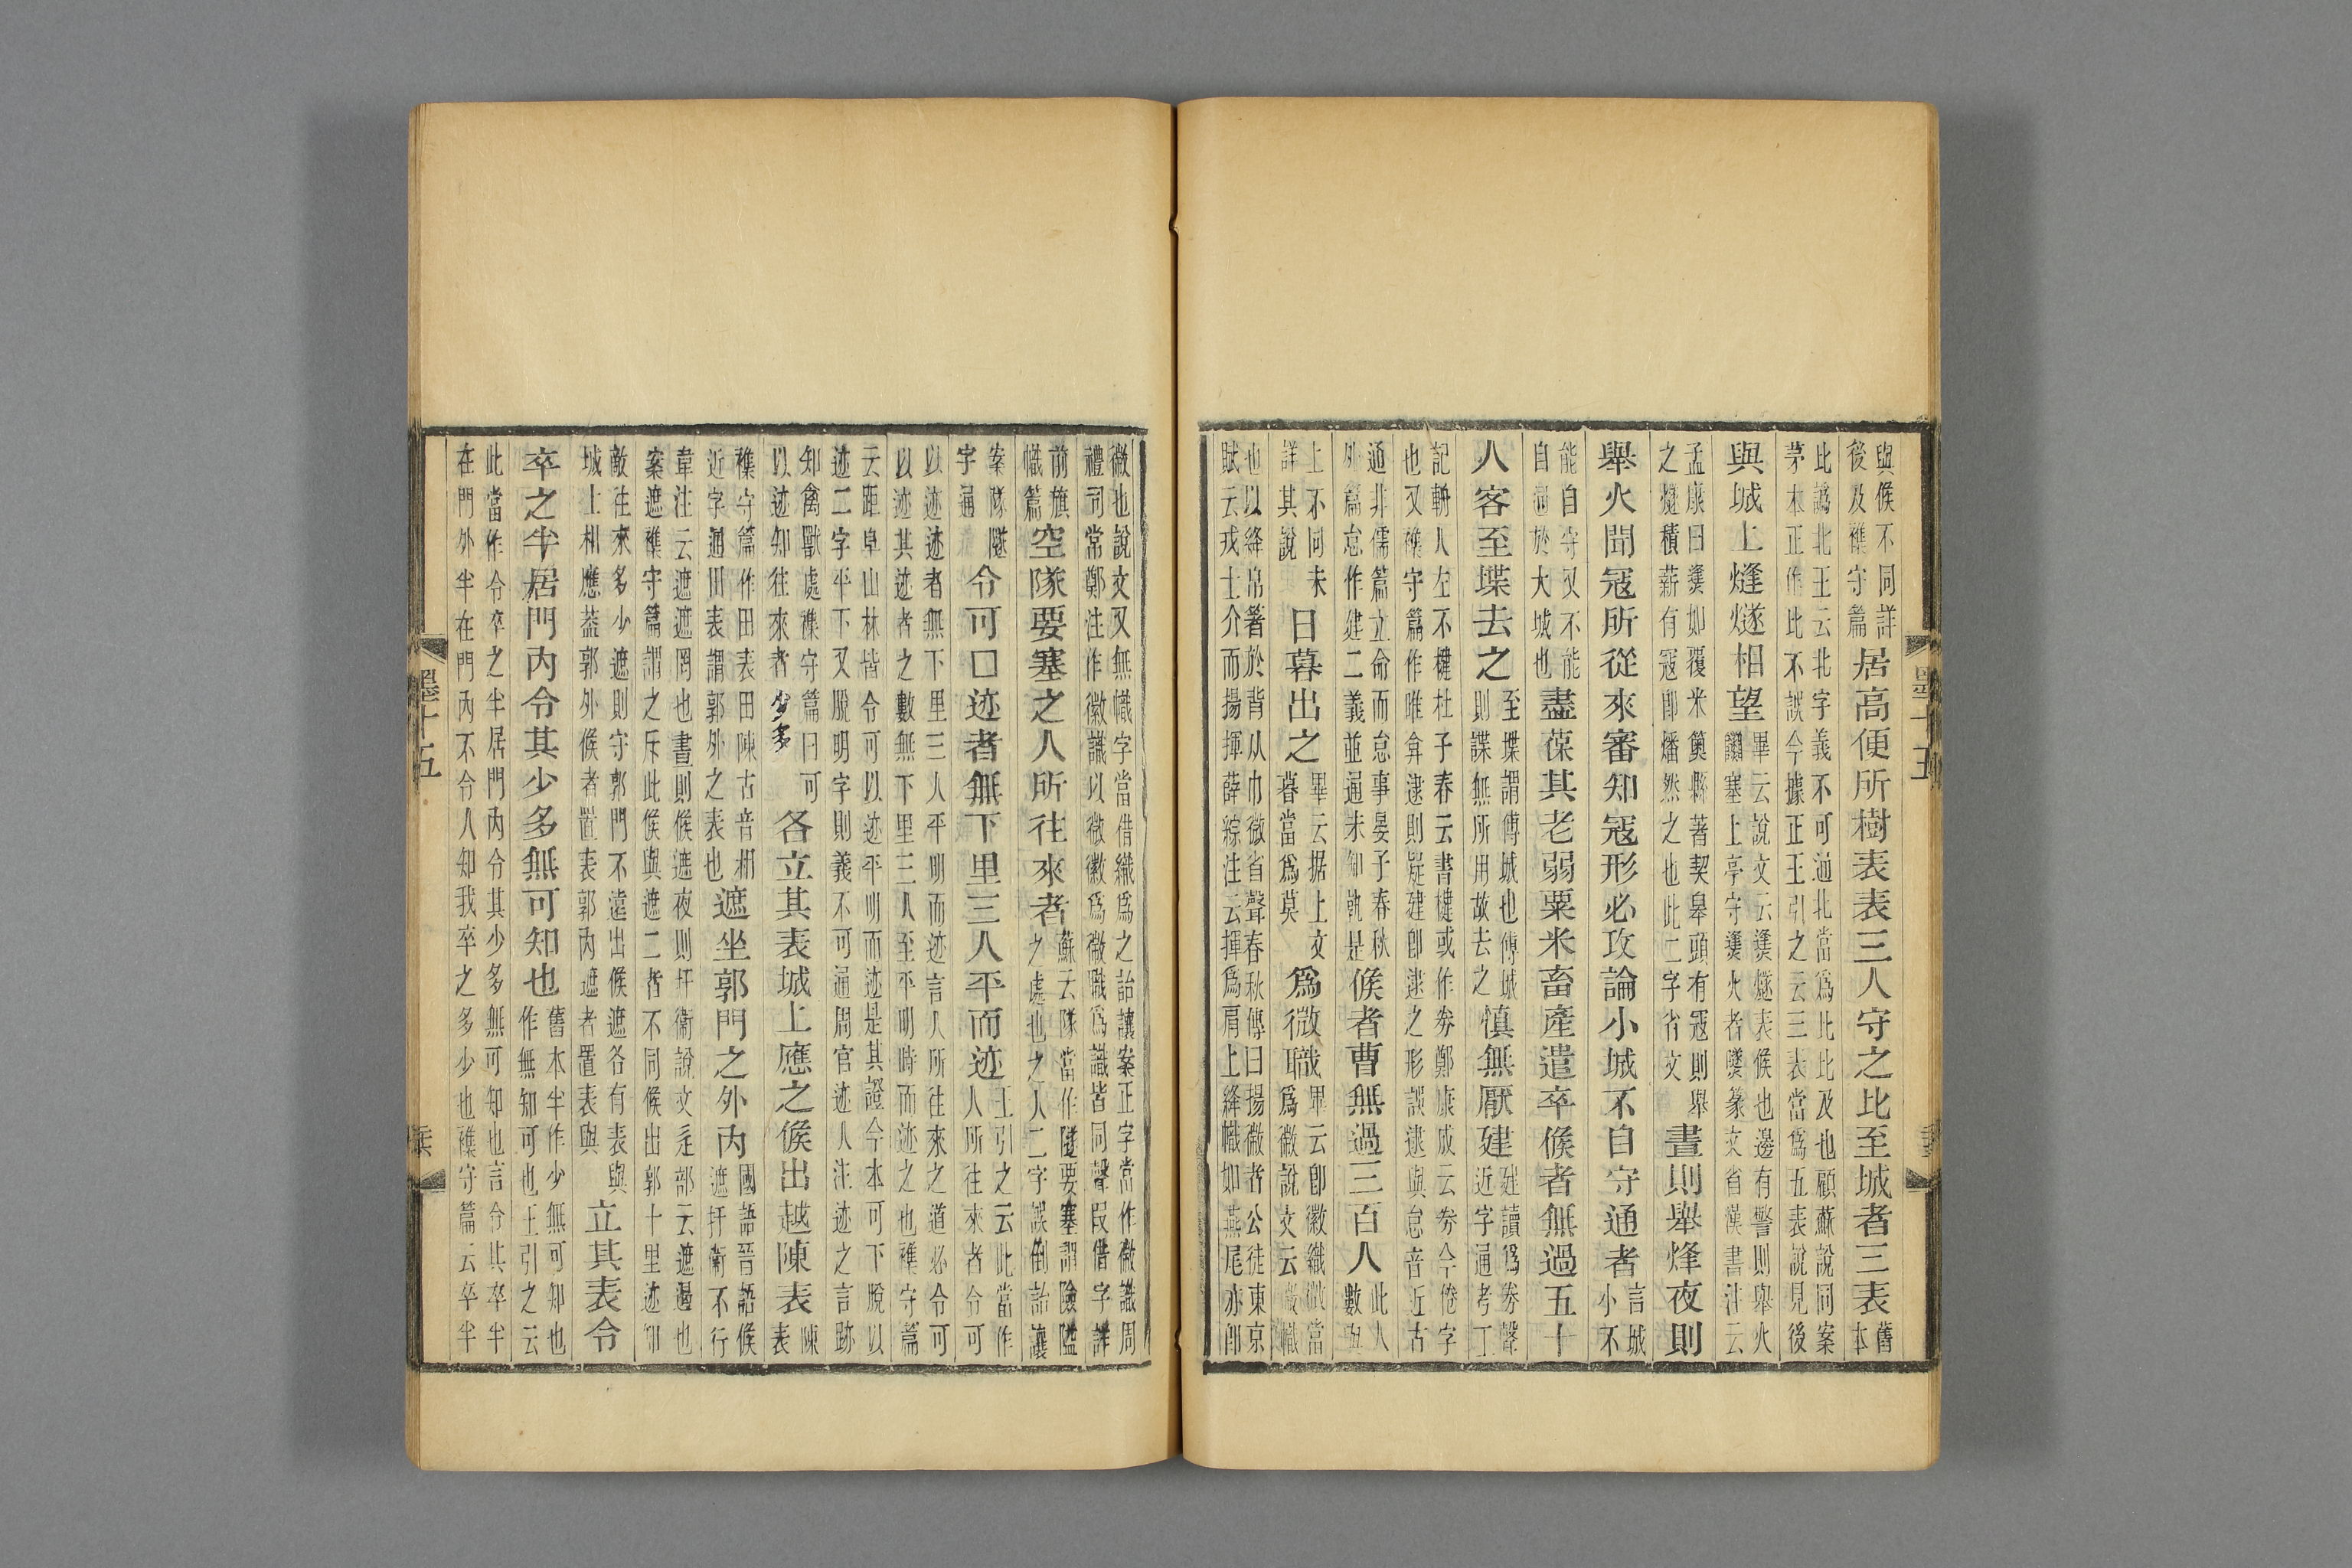 與候不同詳後及襍守篇居高便所樹表表三人守之比至城者三表舊本
此譌北王云北字義不可通北當爲比比及也顧蘇說同案茅本正作比不誤今據正王引之云三表當爲五表說見後
與城上熢燧相望畢云說文云㷭燧表候也邊有警則舉火塞上亭守㷭火者篆文省漢書注云
孟康曰㷭如覆米䉛縣著契臯頭有寇則舉之燧積薪有寇即燔然之也此二字省文晝則舉烽夜則
舉火聞寇所從來審知寇形必攻論小城不自守通者言城小不
能自守又不能自通於大城也盡葆其老弱粟米畜產遣卒候者無過五十
人客至堞去之至堞謂傅城也傅城則諜無所用故去之慎無厭建建讀爲券聲近字通考工
記輈人左不楗杜子春云書楗或作券鄭康成云券今倦字也又襍守篇作唯弇逮則疑建即逮之形誤逮與怠音近古
通非儒篇立命而怠事晏子春秋外篇怠作建二義並通未知孰是候者曹無過三百人此人數與
上不同未詳其說日暮出之畢云据上文暮當爲莫爲微職畢云即徽織微當爲徽說文云徽幟
也以絳帛箸於背从巾微省聲春秋傳曰揚徽者公徒東京賦云戎士介而揚揮薛綜注云揮爲肩上絳幟如燕尾亦即
墨十五
微也說文又無幟字當借織爲之詒讓案正字當作徽識周禮司常鄭注作徽識以微徽爲徽職爲識皆同聲叚借字詳
前旗幟篇空隊要塞之人所往來者蘇云隊當作隧要塞謂險隘之處也之人二字誤倒詒讓
案隊隧字通令可口迹者無下里三人平而迹王引之云此當作人所往來者令可
以迹迹者無下里三人平明而迹言人所往來之道必令可以迹其迹者之數無下里三人至平明時而迹之也襍守篇
云距阜山林皆令可以迹平明而迹是其證今本可下脫以迹二字平下又脫明字則義不可通周官迹人注迹之言跡
知禽獸處襍守篇曰可以迹知往來者少多各立其表城上應之候出越陳表陳表
襍守篇作田表田陳古音相近字通田表謂郭外之表也遮坐郭門之外內國語晉語候遮扞衛不行
韋注云遮遮罔也晝則候遮夜則扞衛說文辵部云遮遏也案遮襍守篇謂之斥此候與遮二者不同候出郭十里迹知
敵往來多少遮則守郭門不遠出候遮各有表與城上相應蓋郭外候者置表郭內遮者置表與立其表令
卒之半居門內令其少多無可知也舊本半作少無可知也作無知可也王引之云
此當作令卒之半居門內令其少多無可知也言令其卒半在門外半在門內不令人知我卒之多少也襍守篇云卒半
墨十五